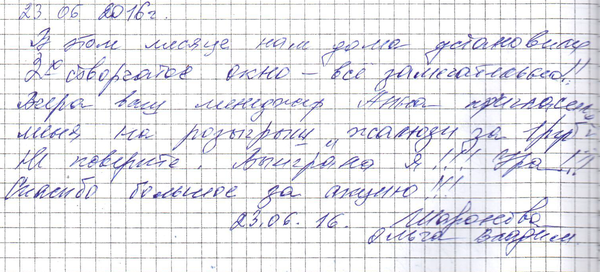 23.06 2016г.
В этом месяце нам дома установили
2х створчатое окно - всё замечательно!!
Вчера ваш менеджер Анна пригласила
меня на розыгрыш „жалюзи за 1 руб"
Не поверите. Выиграла я!!!! Ура!!!
Спасибо большое за акцию!!!
23.06.16.
Ольга Владим